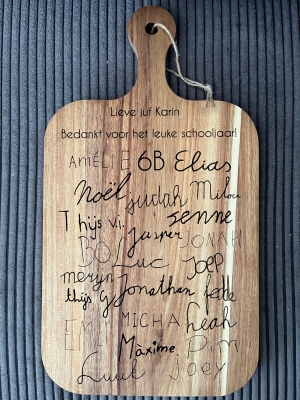 Lieve juf Karin
Bedankt voor het leuke schooljaar!
AMÉLIE 6B Elias
Noël judah Milou
Thijs v.i. Senne
Jasper JONAH
BO Luc Joep
meryn
thijs G Jonathan fedde
EMLI MICHA leah
Maxime Pim
Luuk joey